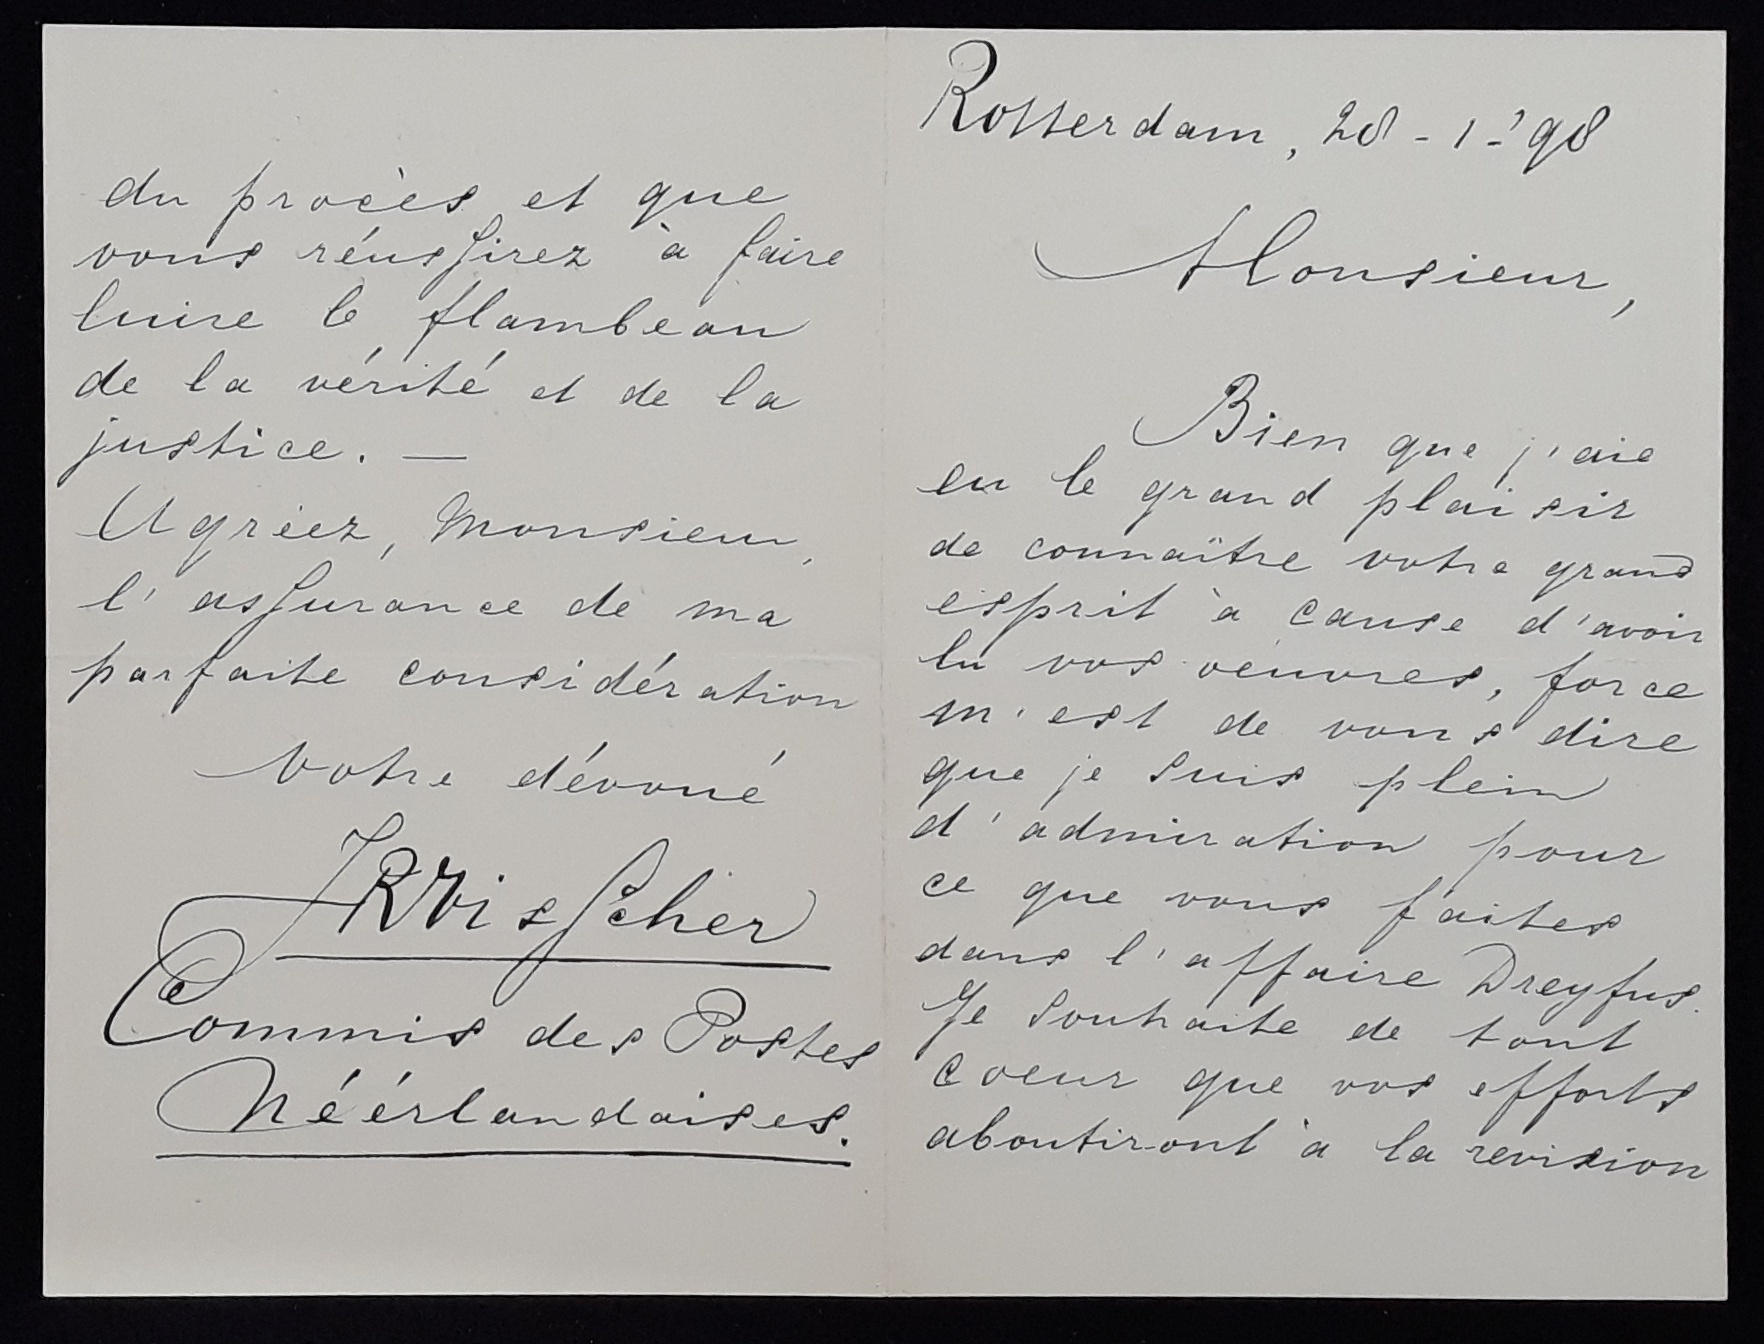 Rotterdam, 28-1-'98
Monsieur,
Bien que j'aie
eu le grand plaisir
de connaître votre grand
esprit à cause d'avoir
lu vos oeuvres, force
m'est de vous dire
que je suis plein
d'admiration pour
ce que vous faites
dans l'affaire Dreyfus.
Je souhaite de tout
coeur que vos efforts
aboutiront à la revision
du procès et que
vous réussirez à faire
luire le flambeau
de la vérité et de la
justice. —
Agréez, Monsieur,
l'assurance de ma
parfaite considération
votre dévoué
JRVisscher
Commis des Postes
Néérlandaises.